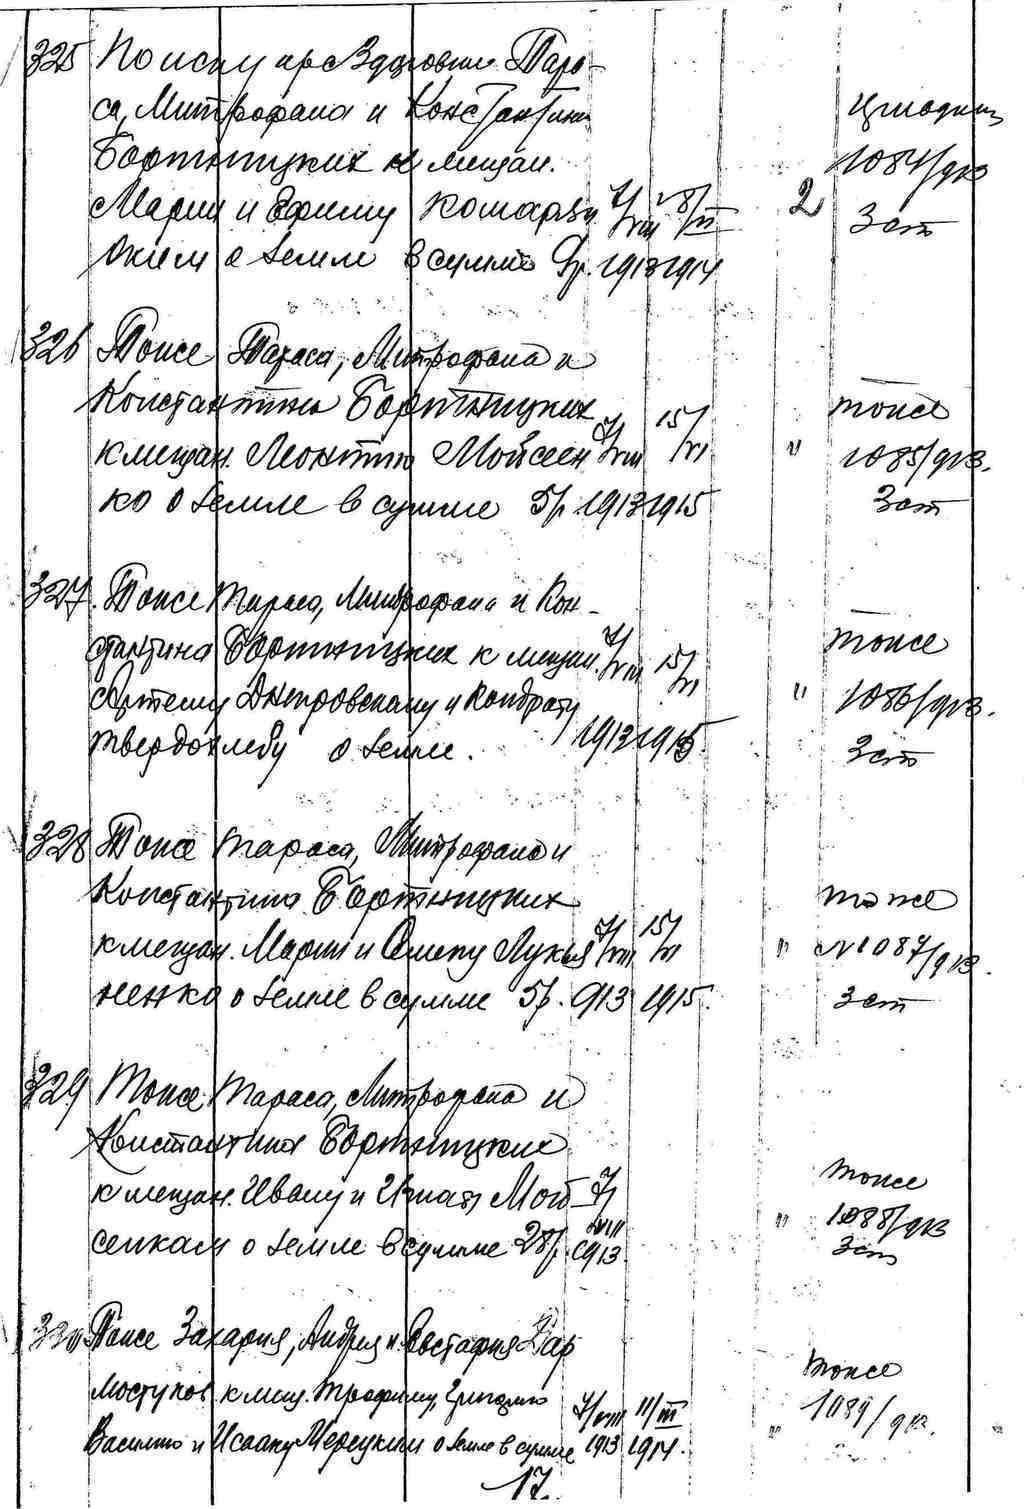 325 По иску кр. Здзовым Тара-
са, Митрофана и Константина
Бортницких к мещан.
Марии и Ефиму Комарзи
оким о земле в сумме 9р.
7/VIII 1913 18/III 1914
2
1084/913
3 ст
326 Тоже Тараса, Митрофана и
Константина Бортницких
к мещан. Леонтию Мойсеен
ко о земле в сумме 5р.
7/VIII 1913 15/VI 1915
"
тоже
1085/913.
3 ст
327. Тоже Тараса, Митрофана и Кон-
стантина Бортницких к мещан.
Артему Днепровскому и Кондрату
Твердохлебу о земле.
7/VIII 1913 15/VI 1915.
"
тоже
1086/913.
3 ст
328 Тоже Тараса, Митрофана и
Константина Бортницких
к мещан. Марии и Семену Лукья
ненка о земле в сумме 5р.
7/VIII 913 15/VI 1915.
"
тоже
№1087/913.
3 ст
329 Тоже Тараса, Митрофана и
Константина Бортницких
к мещан. Ивану и Игнату Мой
сенкам о земле в сумме 28р.
7/VIII 1913
"
тоже
1088/913
3 ст
330 Тоже Захария, Андрея и Евстафия Хар
к мещ. Трофиму, Григорию
Василию и Исааку о земле в сумме
7/VIII 1913 11/III 1914.
"
тоже
1089/913.
17.